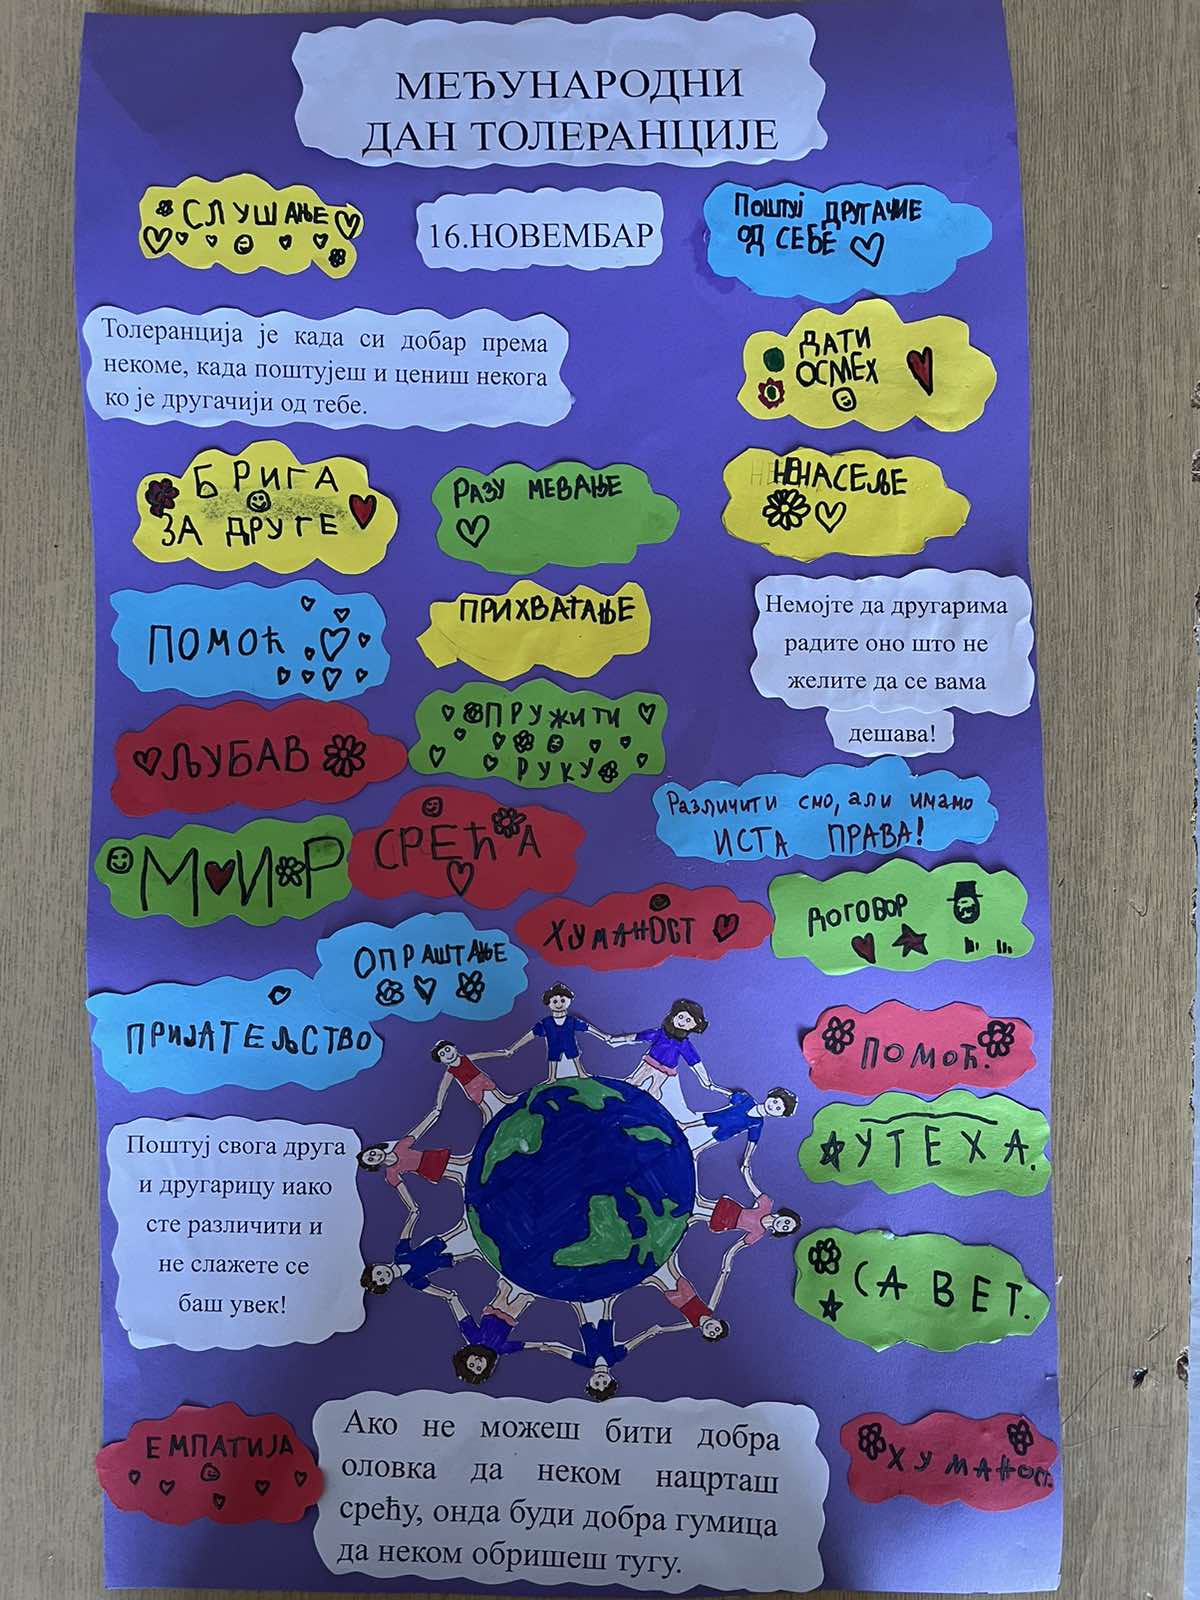 МЕЂУНАРОДНИ
ДАН ТОЛЕРАНЦИЈЕ
СЛУШАЊЕ
16.НОВЕМБАР
ПОШТУЈ ДРУГАЧИЕ
ОД СЕБЕ
Толеранција је када си добар према
некоме, када поштујеш и цениш некога
ко је другачији од тебе.
ДАТИ
ОСМЕХ
БРИГА
ЗА ДРУГЕ
РАЗУМЕВАЊЕ
НЕНАСЕЉЕ
ПОМОЋ
ПРИХВАТАЊЕ
Немојте да другарима
радите оно што не
желите да се вама
дешава!
ЉУБАВ
ПРУЖИТИ
РУКУ
Различити смо, али имамо
ИСТА ПРАВА!
МИР
СРЕЋА
ХУМАНОСТ
ДОГОВОР
ОПРАШТАЊЕ
ПРИЈАТЕЉСТВО
ПОМОЋ.
УТЕХА.
Поштуј свога друга
и другарицу иако
сте различити и
не слажете се
баш увек!
САВЕТ.
ЕМПАТИЈА
Ако не можеш бити добра
оловка да неком нацрташ
срећу, онда буди добра гумица
да неком обришеш тугу.
ХУМАНОСТ.